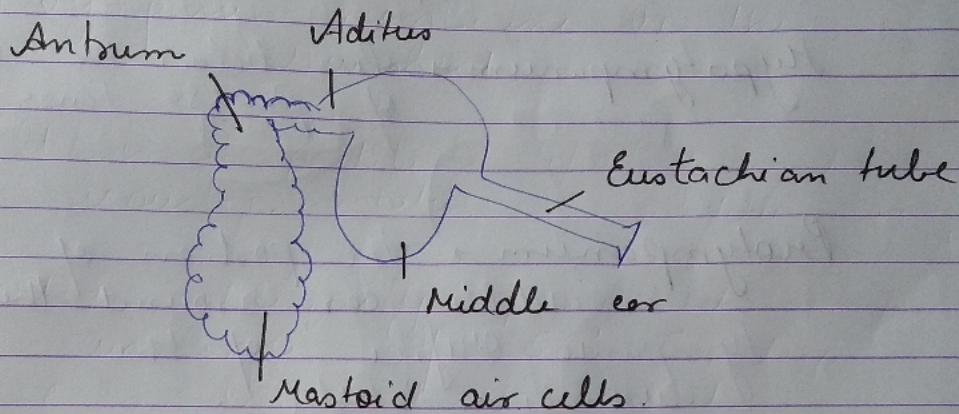 Aditus
Antrum
Eustachian tube
Middle ear
Mastoid air cells.